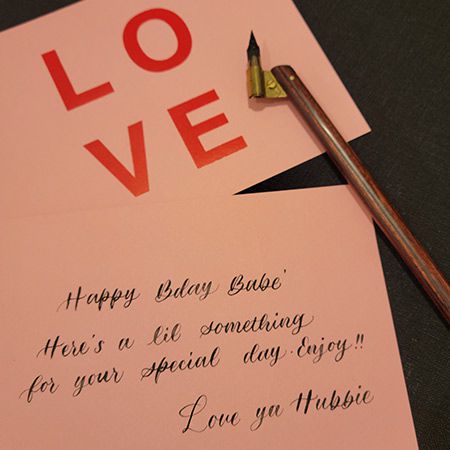 LO
VE
Happy Bday Babe'
Here's a lil something
for your special day. Enjoy!!
Love ya Hubbie